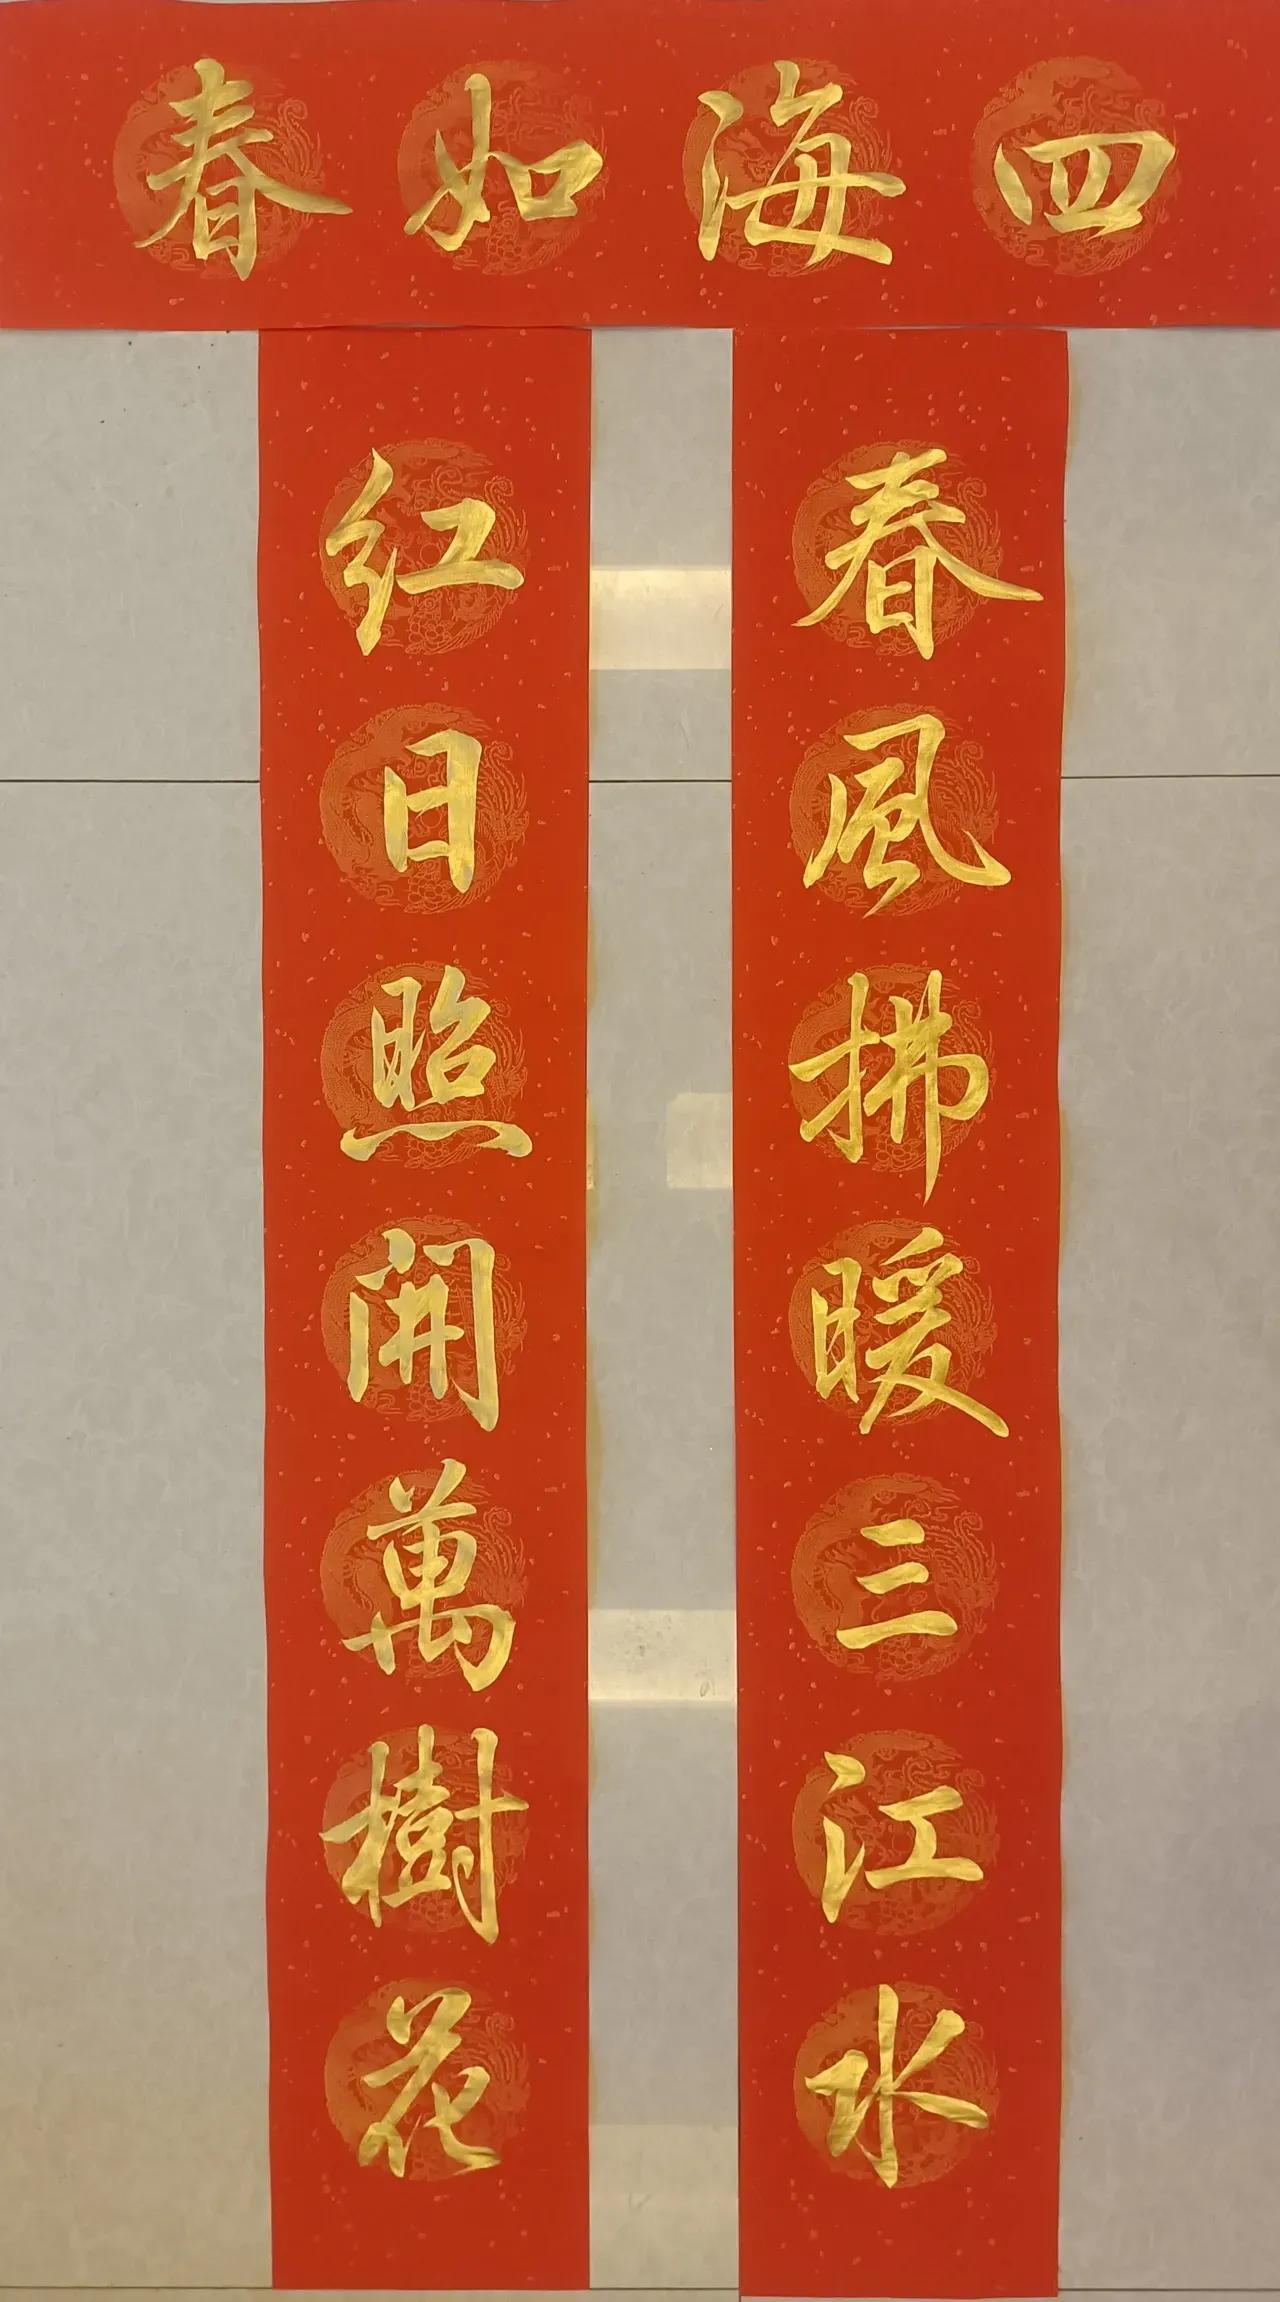 四海如春
春風拂暖三江水
红日照開萬樹花